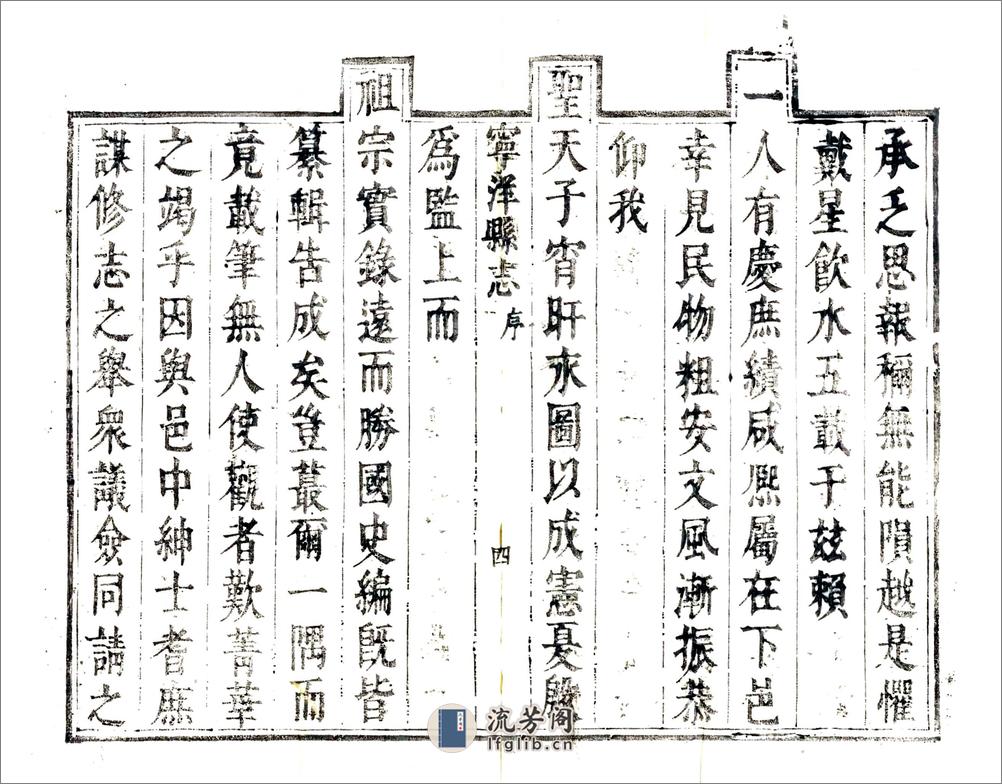 承乏思報稱無能隕越是懼
戴星飲水五載于玆賴
一人有慶庶績咸熈屬在下邑
幸見民物粗安文風漸振恭
仰我
聖天子宵旰永圖以成憲夏殷
寧洋縣志 序 四
為監上而
祖宗實錄遠而勝國史編旣皆
纂輯告成矣豈蕞爾一隅而
竟載筆無人使觀者歎菁華
之竭乎因與邑中紳士耆庶
謀修志之舉衆議僉同請之
流芳阁
lfglib.cn